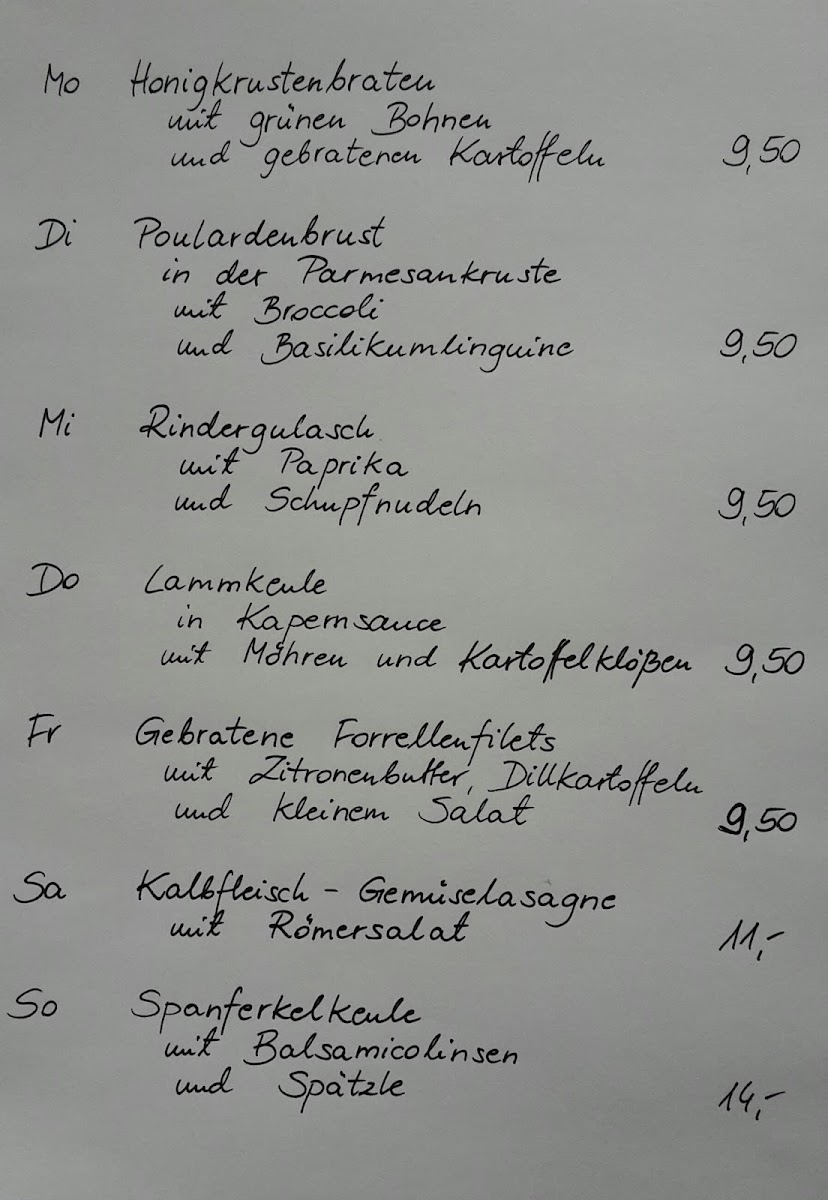 Mo Honigkrustenbraten
mit grünen Bohnen
und gebratenen Kartoffeln 9,50
Di Poulardenbrust
in der Parmesankruste
mit Broccoli
und Basilikumlinguine 9,50
Mi Rindergulasch
mit Paprika
und Schupfnudeln 9,50
Do Lammkeule
in Kapernsauce
mit Möhren und Kartoffelklößen 9,50
Fr Gebratene Forrellenfilets
mit Zitronenbutter, Dillkartoffeln
und kleinem Salat 9,50
Sa Kalbfleisch - Gemüselasagne
mit Römersalat 11,-
So Spanferkelkeule
mit Balsamicolinsen
und Spätzle 14,-